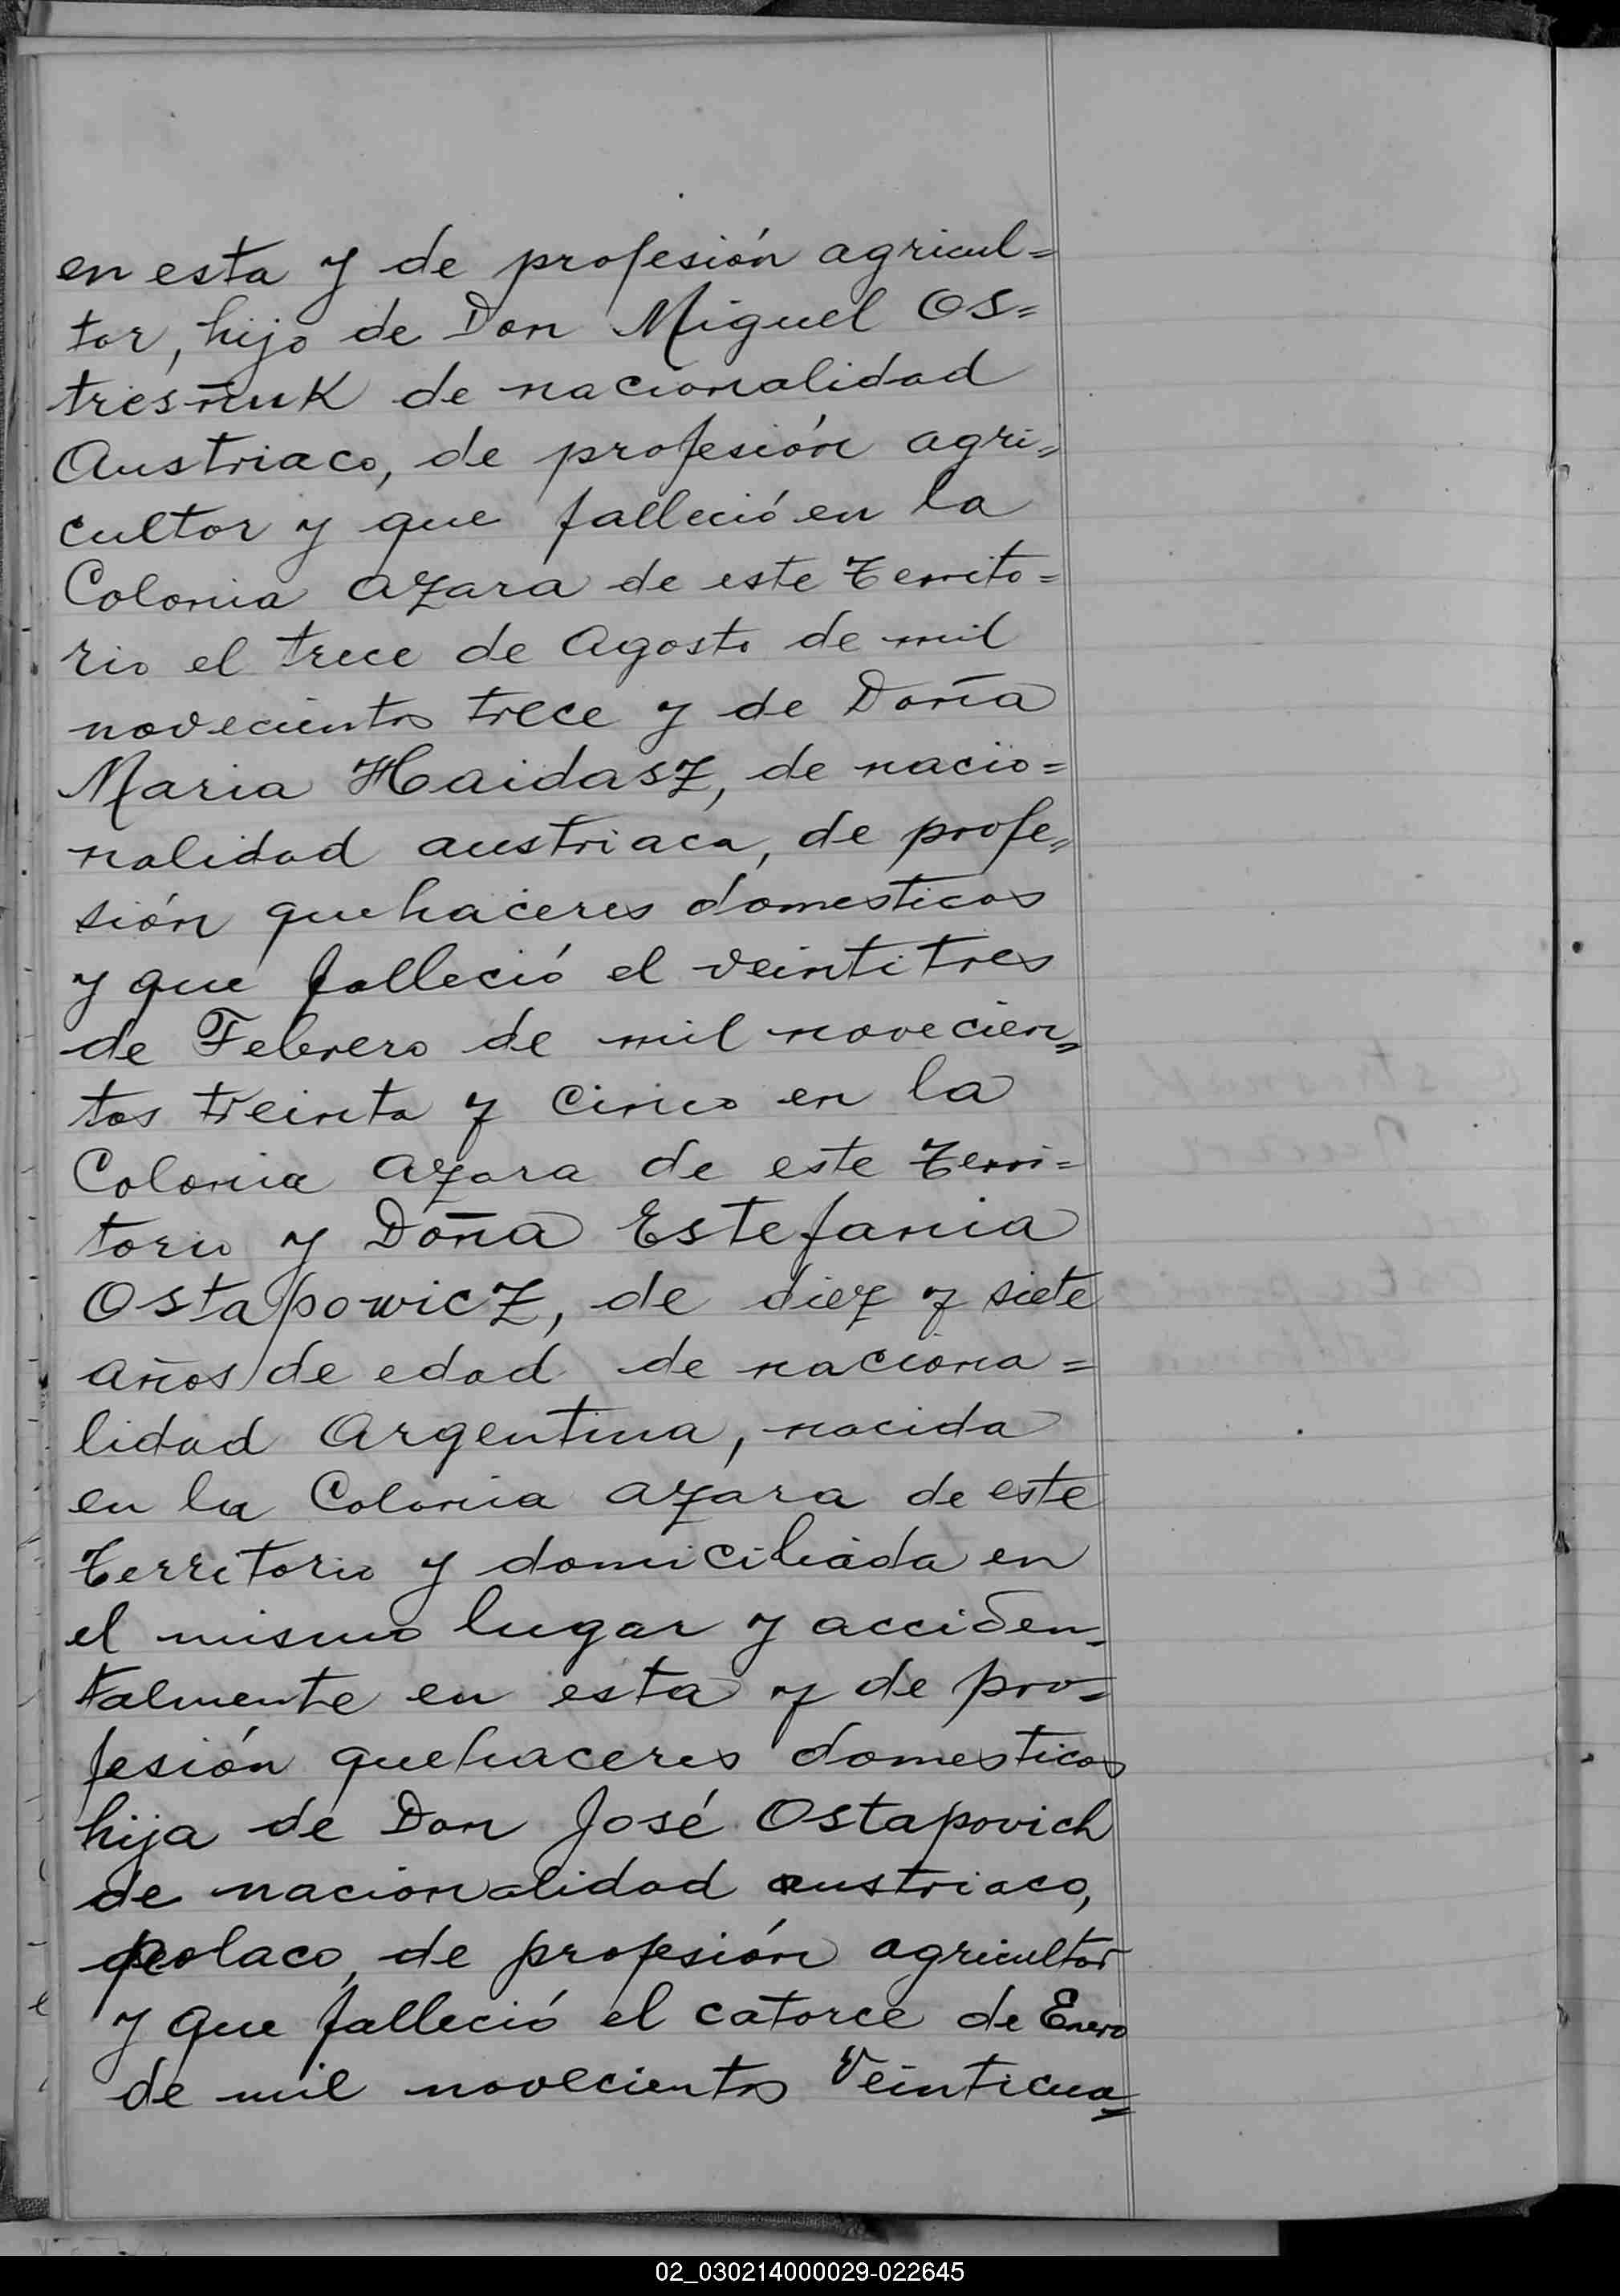 en esta y de profesión agricul=
tor, hijo de Don Miguel Os=
tresñuk de nacionalidad
Austriaco, de profesión agri=
cultor y que falleció en la
Colonia Azara de este Territo=
rio el trece de Agosto de mil
novecientos trece y de Doña
Maria Haidasz, de nacio=
nalidad austriaca, de profe=
sión quehaceres domesticos
y que falleció el veintitres
de Febrero de mil novecien=
tos treinta y cinco en la
Colonia Azara de este Terri=
torio y Doña Estefania
Ostapowicz, de diez y siete
años de edad de naciona=
lidad Argentina, nacida
en la Colonia Azara de este
Territorio y domiciliada en
el mismo lugar y acciden=
talmente en esta y de pro=
fesión quehaceres domesticos
hija de Don José Ostapovich
de nacionalidad austriaco,
polaco, de profesión agricultor
y que falleció el catorce de Enero
de mil novecientos Veinticua=
02_030214000029-022645